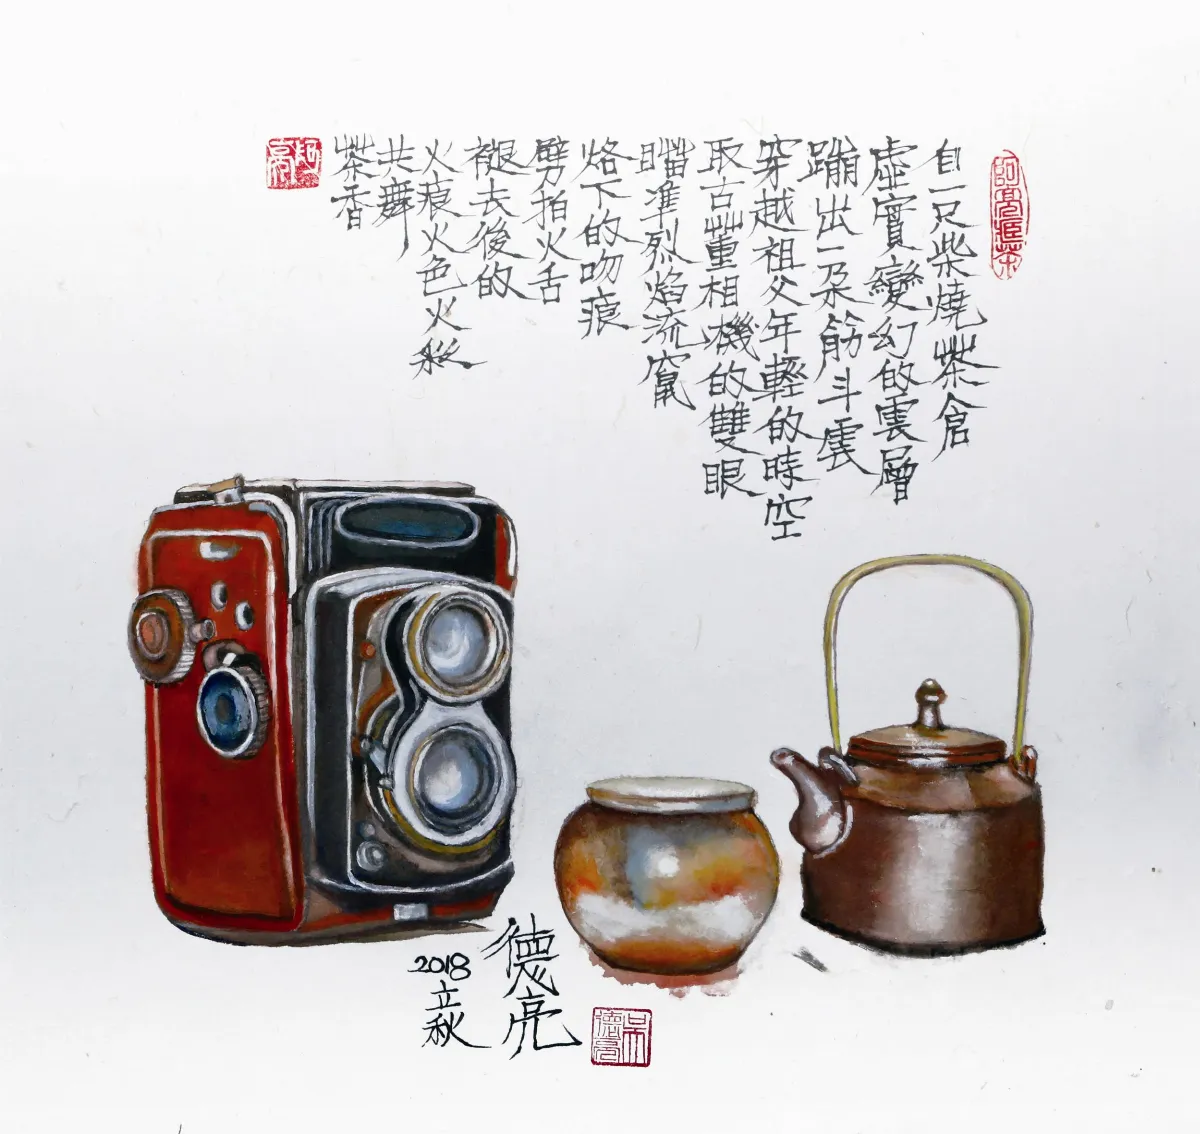 阿亮找茶
自一只柴燒茶倉
虛實變幻的雲層
蹦出一朵筋斗雲
穿越祖父年輕的時空
取古董相機的雙眼
瞄準烈焰流竄
烙下的吻痕
劈拍火舌
褪去後的
火痕火色火彩
共舞
茶香
阿亮
德亮
2018
立秋
吳德亮